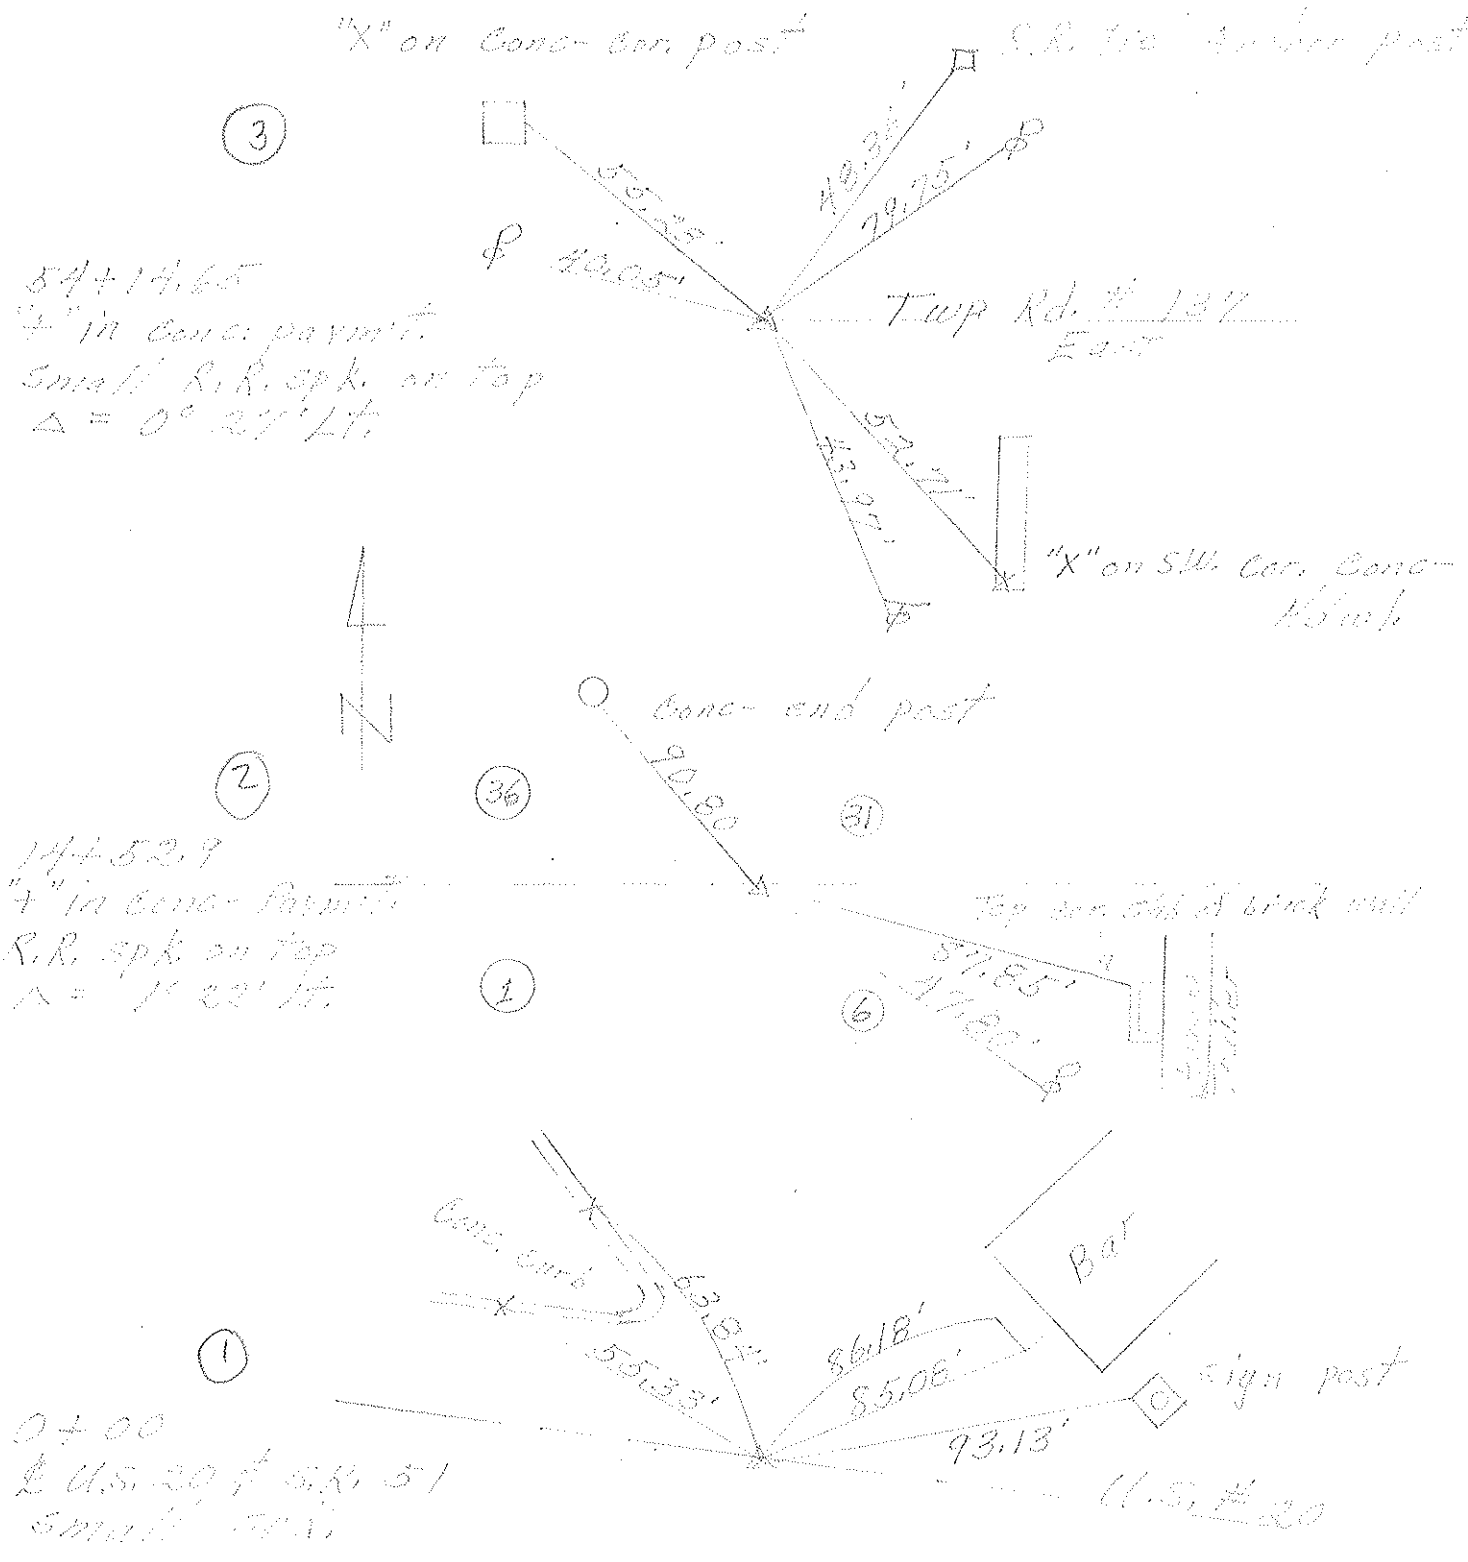 "X" on Conc- Cor. post
R.R. tie post
3
48.36'
79.75'
55.29'
40.05'
54+14.65
"+" in Conc. pavmn't.
Small R.R. spk. on top
Δ = 0° 27' Lt.
Twp Rd. # 137
East
52.71'
43.97'
"X" on SW. Cor. Conc-
N
Conc- end post
90.80
2
36
31
14+52.9
"+" in Conc- Pavmn't.
R.R. spk. on top
Δ = 1° 22' Lt.
Top brick wall
87.85'
47.80'
1
6
Conc. Curb
63.84'
55.33'
Bar
86.18'
85.06'
93.13'
sign post
1
0+00
₵ U.S. 20 & S.R. 51
Small spk.
U.S. # 20